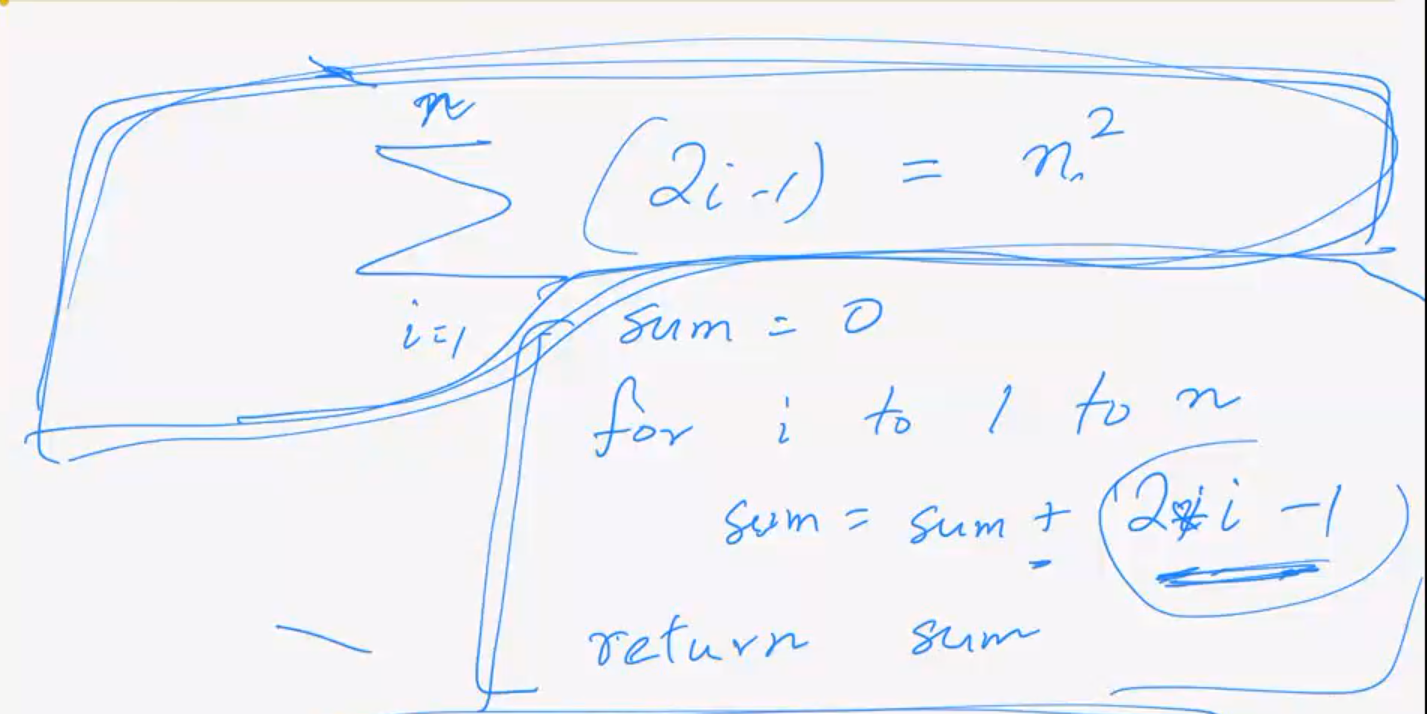 n
∑ (2i-1) = n²
i=1
sum = 0
for i to 1 to n
sum = sum + (2*i -1)
return sum